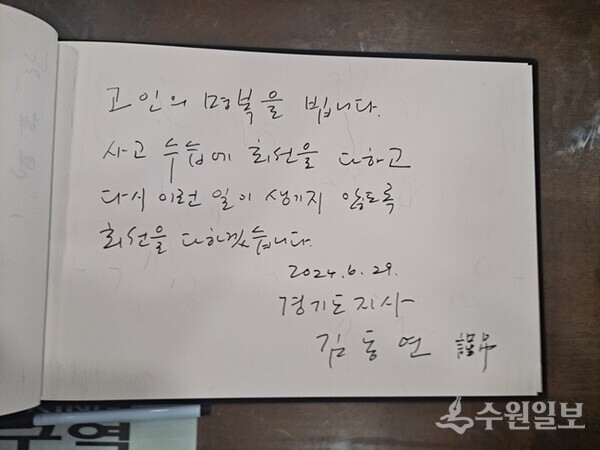 고인의 명복을 빕니다.
사고 수습에 최선을 다하고
다시 이런 일이 생기지 않도록
최선을 다하겠습니다.
2024.6.29.
경기도지사
김동연
수원일보
구역